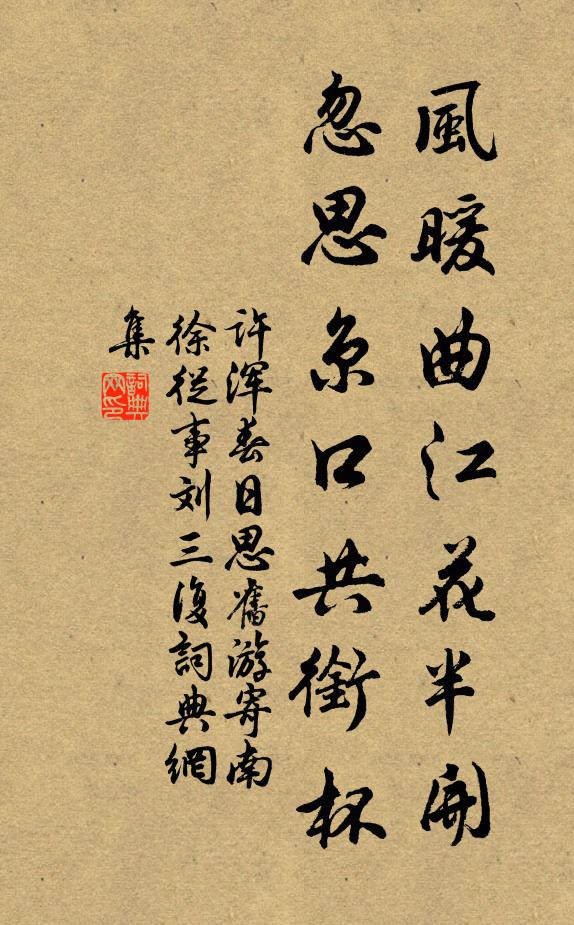 風暖曲江花半開
忽思京口共銜杯
許渾春日思舊游寄南
徐從事刘三復詞典網
集
詞典
网印